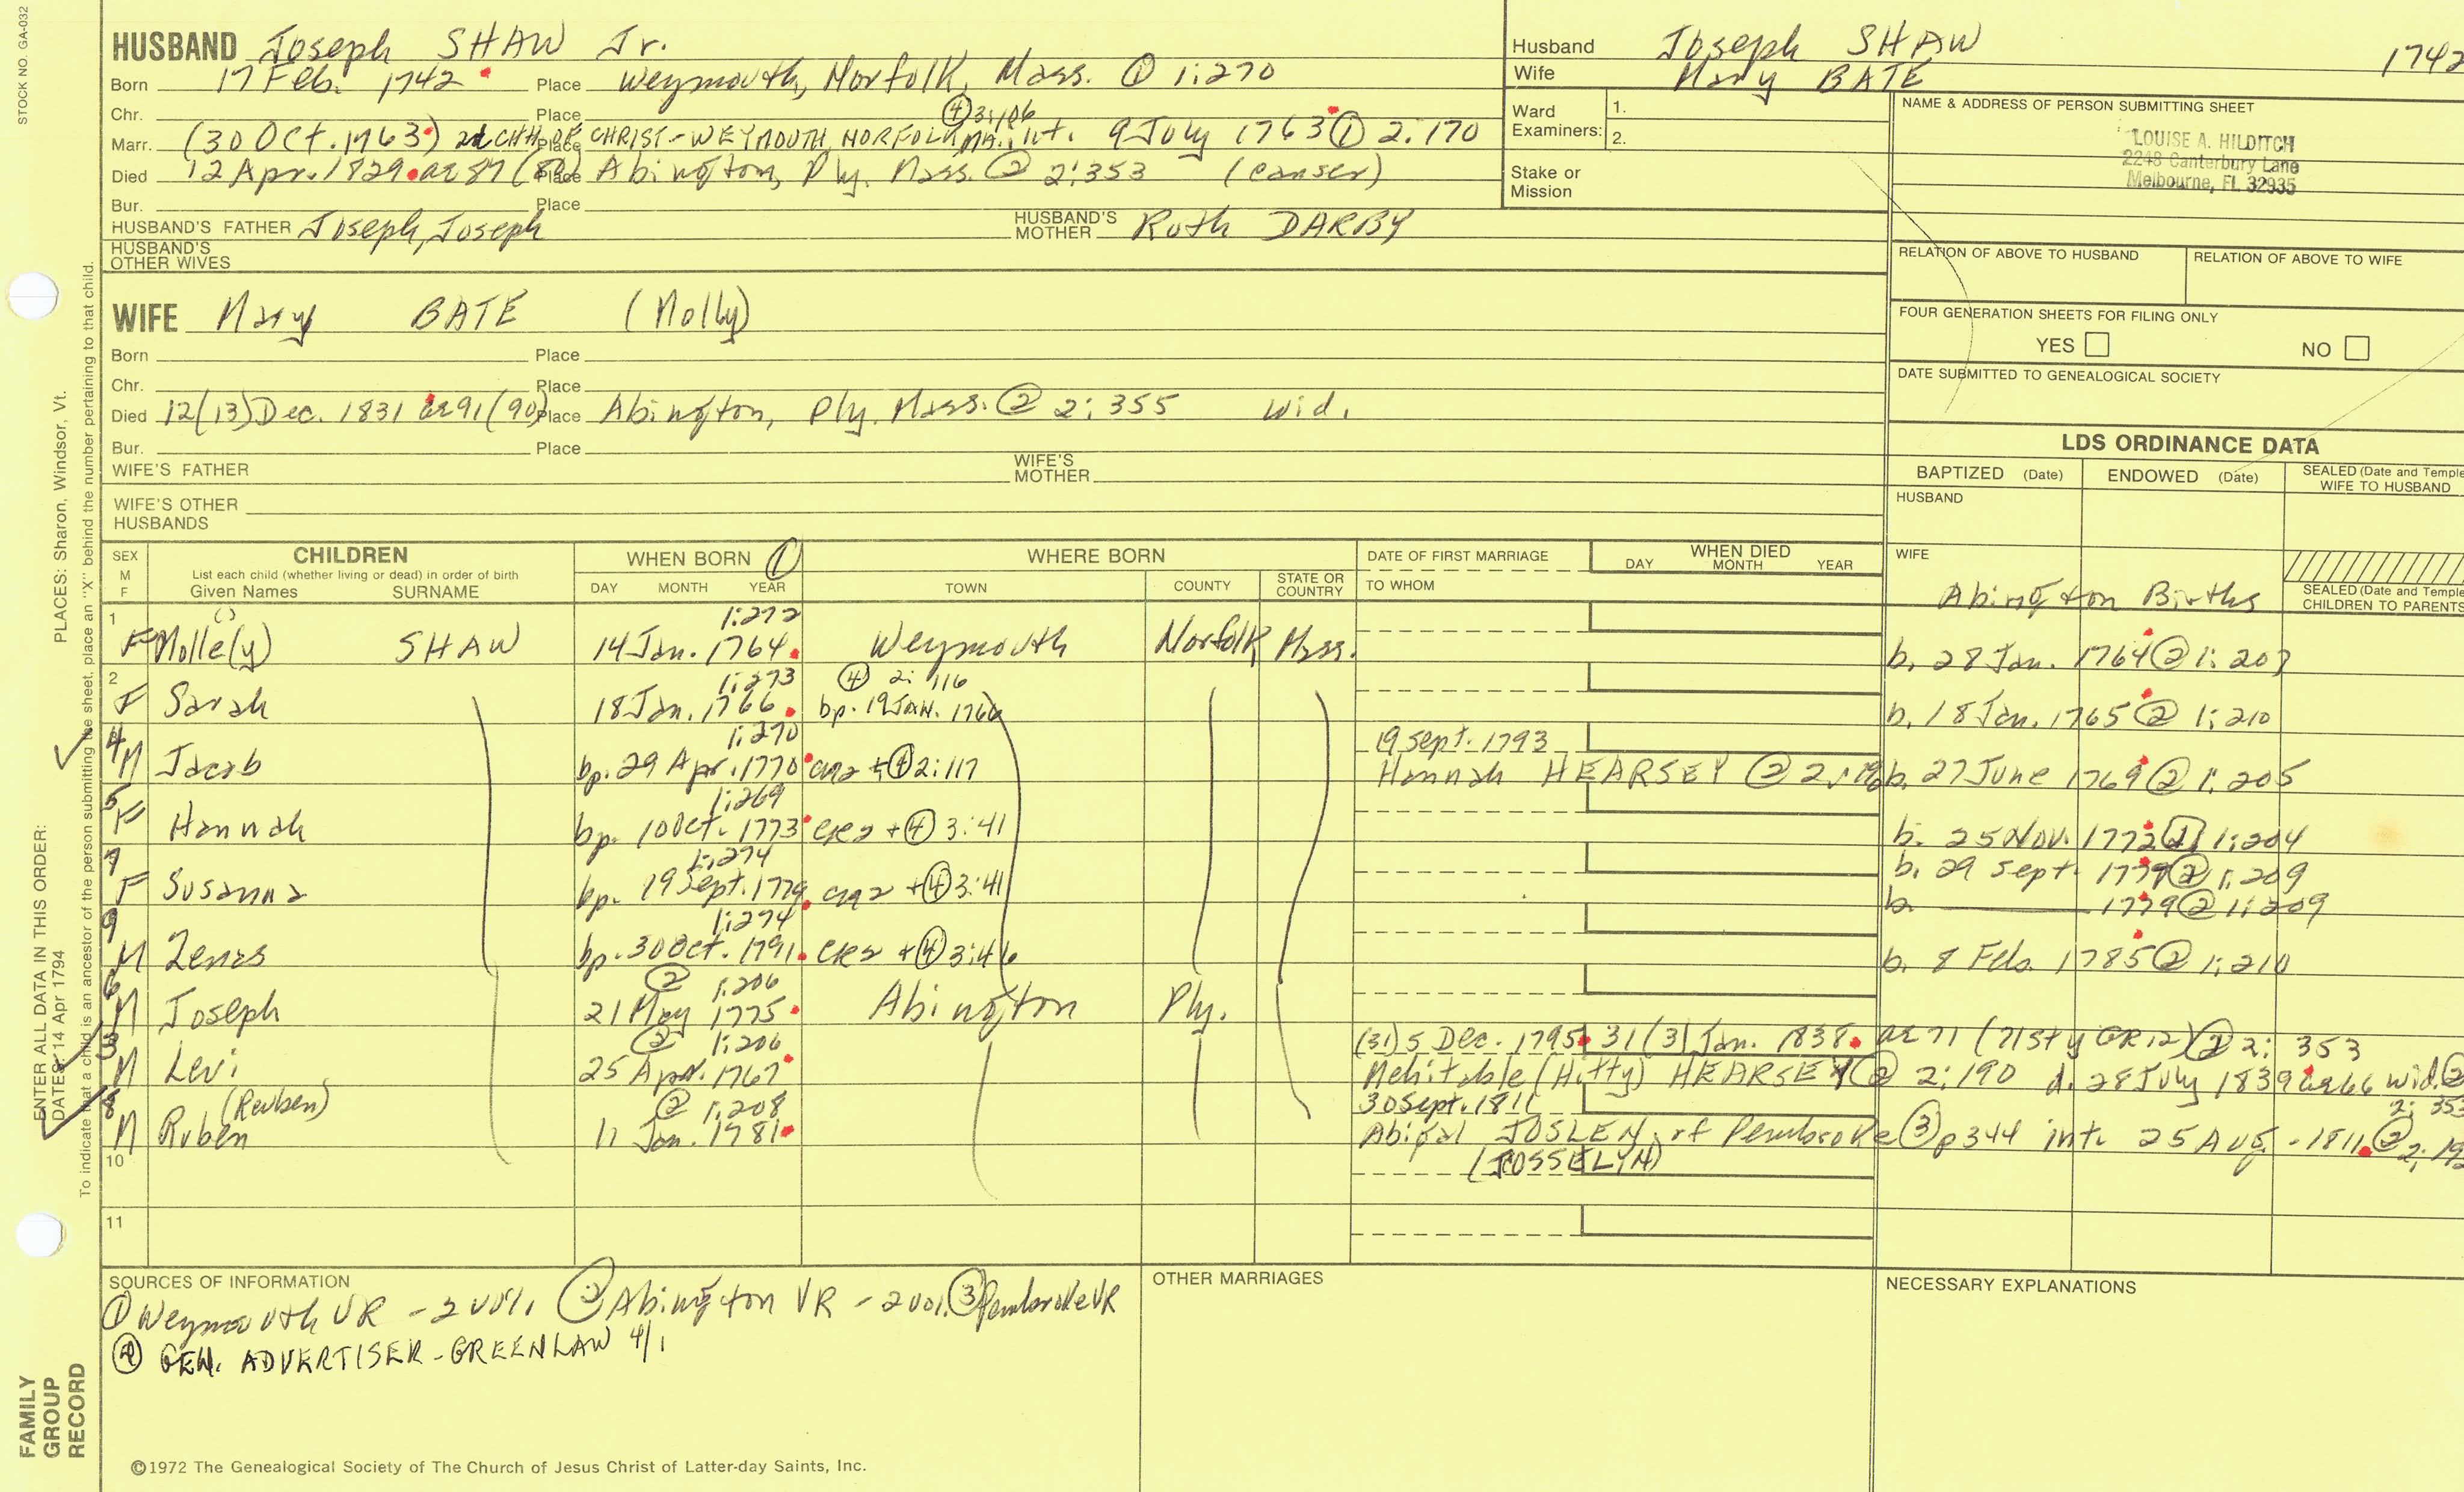 STOCK NO. GA-032
HUSBAND Joseph SHAW Jr.
Born 17 Feb. 1742 Place Weymouth, Norfolk, Mass. ① 1:270
Chr. Place ④ 3:106
Marr. (30 Oct. 1763) 2d CHH OF CHRIST - WEYMOUTH, NORFOLK, MA., int. 9 July 1763 ① 2:170
Died 12 Apr. 1829 ae 87 Place Abington, Ply. Mass. ② 2:353 (canser)
Bur. Place
HUSBAND'S FATHER Joseph, Joseph HUSBAND'S MOTHER Ruth DARBY
HUSBAND'S OTHER WIVES
Husband Joseph SHAW 1742
Wife Mary BATE
Ward Examiners: 1.
2.
Stake or Mission
NAME & ADDRESS OF PERSON SUBMITTING SHEET
LOUISE A. HILDITCH
2248 Canterbury Lane
Melbourne, FL 32935
RELATION OF ABOVE TO HUSBAND RELATION OF ABOVE TO WIFE
FOUR GENERATION SHEETS FOR FILING ONLY
YES NO
DATE SUBMITTED TO GENEALOGICAL SOCIETY
WIFE Mary BATE (Molly)
Born Place
Chr. Place
Died 12(13) Dec. 1831 ae 91 (90) Place Abington, Ply. Mass. ② 2:355 wid.
Bur. Place
WIFE'S FATHER WIFE'S MOTHER
WIFE'S OTHER HUSBANDS
LDS ORDINANCE DATA
BAPTIZED (Date) ENDOWED (Date) SEALED (Date and Temple) WIFE TO HUSBAND
HUSBAND
WIFE
SEALED (Date and Temple) CHILDREN TO PARENTS
Abington Births
SEX M F CHILDREN List each child (whether living or dead) in order of birth Given Names SURNAME
WHEN BORN ① DAY MONTH YEAR
WHERE BORN TOWN COUNTY STATE OR COUNTRY
DATE OF FIRST MARRIAGE TO WHOM
WHEN DIED DAY MONTH YEAR
1 1:272
F Molle(y) SHAW 14 Jan. 1764 Weymouth Norfolk Mass. b. 28 Jan. 1764 ② 1:207
2 1:273 ④ 2:116
F Sarah 18 Jan. 1766 bp. 19 JAN. 1766 b. 18 Jan. 1765 ② 1:210
4 1:270 19 Sept. 1793
M Jacob bp. 29 Apr. 1770 CR2 + ④ 2:117 Hannah HEARSEY ② b. 27 June 1769 ② 1:205
5 1:269
F Hannah bp. 10 Oct. 1773 CR2 + ④ 3:41 b. 25 Nov. 1772 ② 1:204
7 1:274 b. 29 Sept. 1779 ② 1:209
F Susanna bp. 19 Sept. 1779 CR2 + ④ 3:41 b. 1779 ② 1:209
9 1:274
M Zenas bp. 30 Oct. 1791 CR2 + ④ 3:46 b. 8 Feb. 1785 ② 1:210
6 ② 1:206
M Joseph 21 May 1775 Abington Ply.
3 ② 1:206 (31) 5 Dec. 1795 31(3) Jan. 1838 ae 71 (71st y GR12) ② 2:353
M Levi 25 Apr. 1767 Mehitable (Hitty) HEARSEY ② 2:190 d. 28 July 1839 ae 66 wid. ② 2:353
8 (Reuben) ② 1:208 30 Sept. 1811
M Ruben 11 Jan. 1781 Abigal JOSLEN of Pembroke ③ p344 int. 25 Aug. 1811 ②
10 (JOSSELYN)
11
SOURCES OF INFORMATION
① Weymouth VR - 2 vols. ② Abington VR - 2 vol. ③ Pembroke VR
④ GEN. ADVERTISER - GREENLAW 4/1
OTHER MARRIAGES
NECESSARY EXPLANATIONS
ENTER ALL DATA IN THIS ORDER:
DATES: 14 Apr 1794
PLACES: Sharon, Windsor, Vt.
To indicate that a child is an ancestor of the person submitting the sheet, place an "X" behind the number pertaining to that child.
FAMILY
GROUP
RECORD
©1972 The Genealogical Society of The Church of Jesus Christ of Latter-day Saints, Inc.